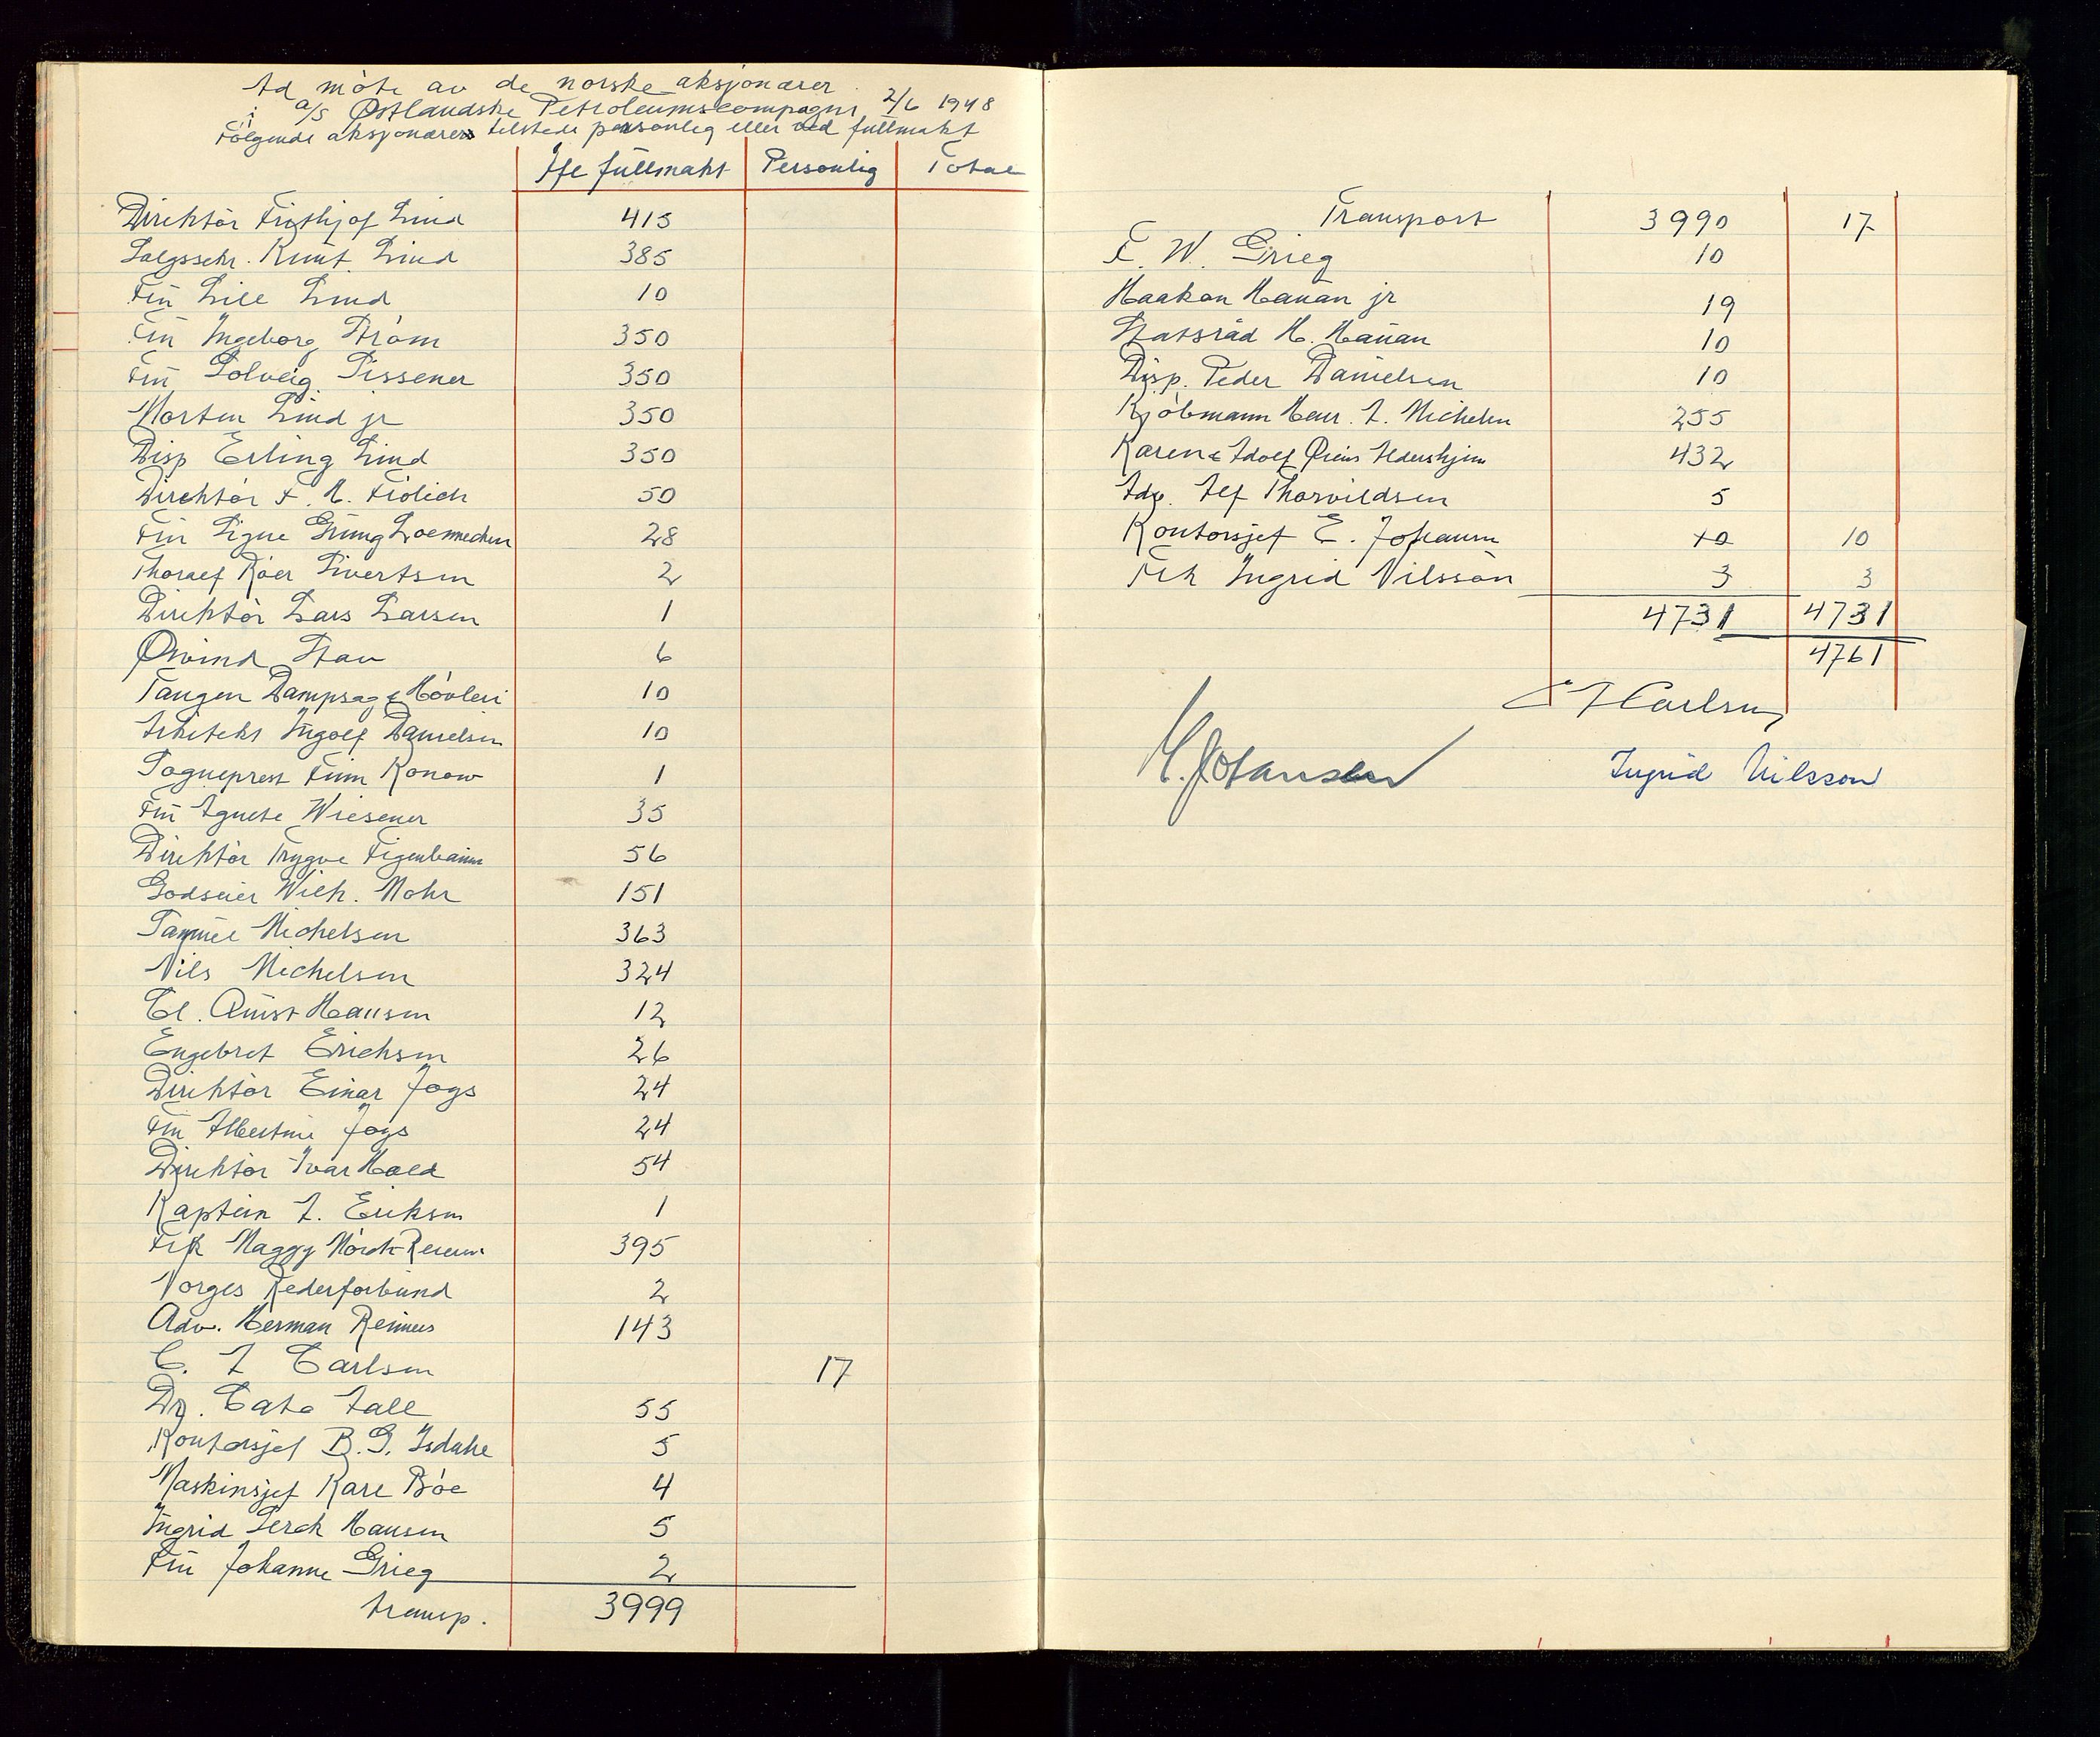 Ad møte av de norske aksjonærer
i A/S Østlandske Petroleumscompagni 2/6 1948
Følgende aksjonærer tilstede personlig eller ved fullmakt
Ifl fullmakt Personlig Total
Direktör Frithjof Lind 415
Salgssekr. Knut Lind 385
Fru Lill Lind 10
Fru Ingeborg Strøm 350
Fru Solveig Sissener 350
Morten Lind jr 350
Disp Erling Lind 350
Direktör F. M. Frölich 50
Fru Signe Grung Loennechen 28
Thoralf Röer Sivertsen 2
Direktör Lars Larsen 1
Øivind Stav 6
Tangen Dampsag & Høvleri 10
Arkitekt Ingolf Danielsen 10
Sogneprest Finn Konow 1
Fru Agnete Wiesener 35
Direktör Trygve Figenbaum 56
Godseier Wilh. Mohr 151
Samuel Michelsen 363
Nils Michelsen 324
Cl. Quist Hansen 12
Engebret Erichsen 26
Direktör Einar Joys 24
Fru Albertine Joys 24
Direktör Ivar Hold 54
Kaptein A. Eriksen 1
Frk Maggy Mörch-Reiersen 395
Norges Rederforbund 2
Adv. Herman Reimers 143
C. A Carlsen 17
Dr. Cato Aall 55
Kontorsjef B. G. Isdahl 5
Maskinsjef Kare Böe 4
Ingrid Lerch Hansen 5
Fru Johanne Grieg 2
transp. 3999
Transport 3990 17
F. W. Grieg 10
Haakon Hauan jr 19
Statsråd H. Hauan 10
Disp. Peder Danielsen 10
Kjöbmann Haur. A. Michelsen 255
Karen & Adolf Øiens Aldershjem 432
Adv. Alf Thorvildsen 5
Kontorsjef E. Johansen 10 10
Frk Ingrid Nilsson 3 3
4731 4731
4761
C A Carlsen
E. Johansen
Ingrid Nilsson